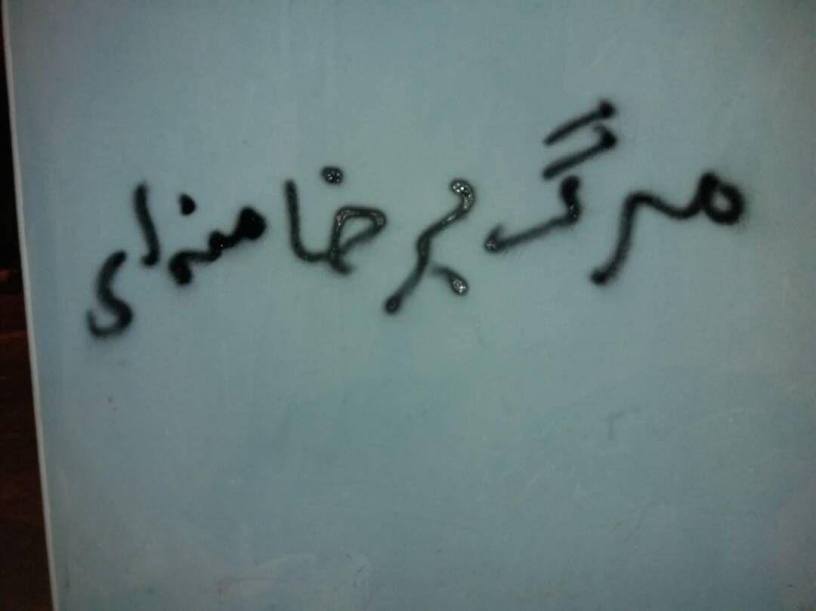 مرگ بر خامنه‌ای